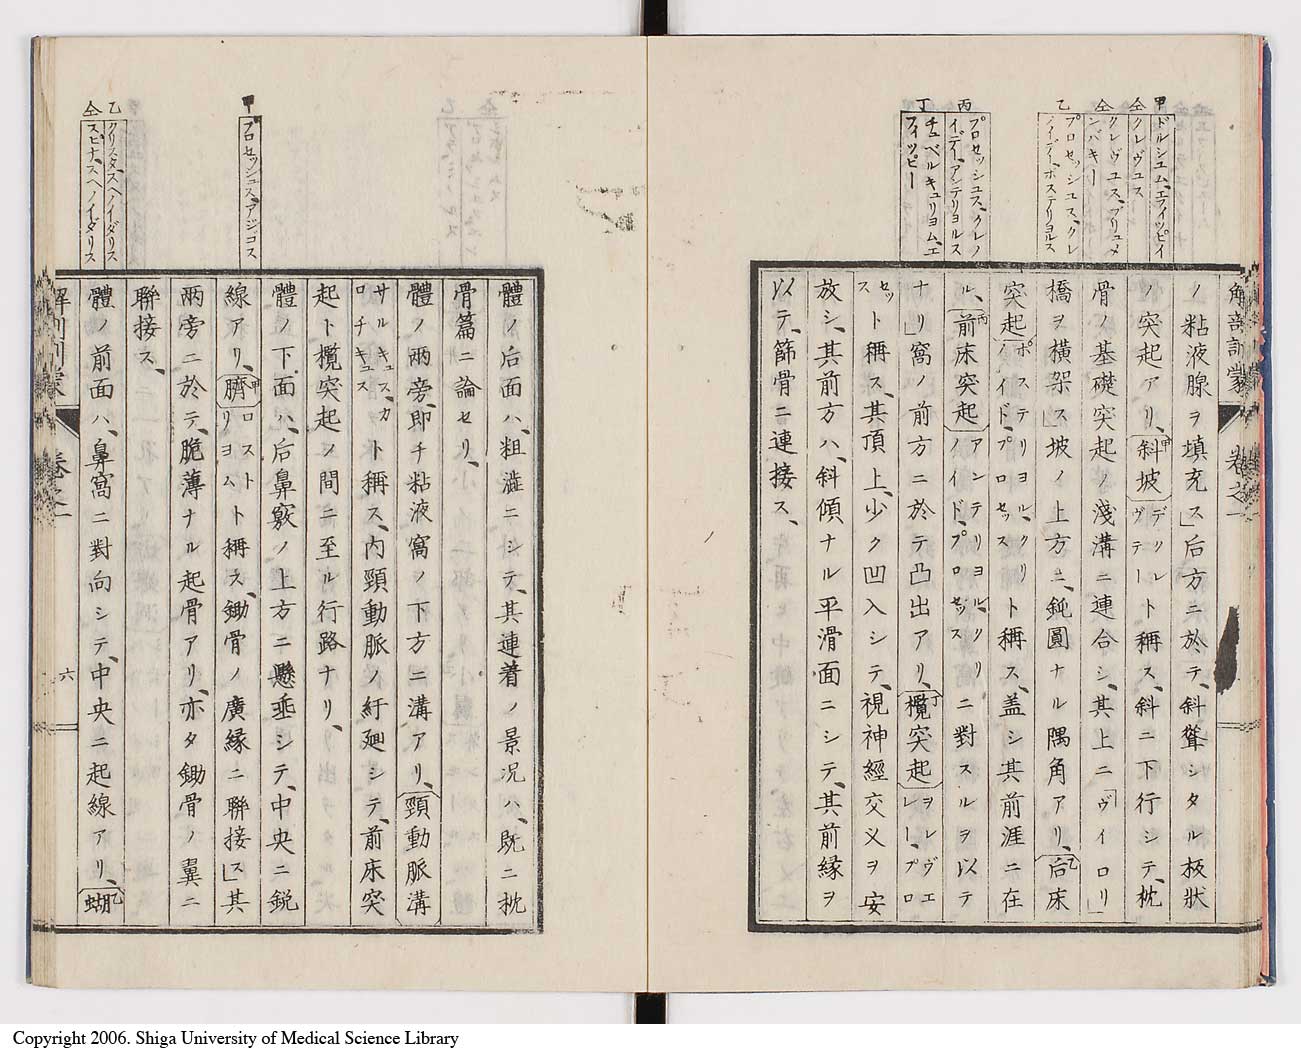 甲
ドルシユム、エフイツピイ
仝
クレヴユス
仝
クレヴユス、ブリユメ
ンバキー
乙
プロセツシユス、クレ
ノイデイ、ポステリヨルス
丙
プロセツシユス、クレノ
イデイ、アンテリヨルス
丁
チユベルキユリヨム、エ
フイツピー
解剖訓蒙 卷之一
ノ粘液腺ヲ填充ス」后方ニ於テ、斜聳シタル板狀
ノ突起アリ、斜坡甲デクレト ヴテート稱ス、斜ニ下行シテ、枕
骨ノ基礎突起ノ淺溝ニ連合シ、其上ニ「ヴイロリ」
橋ヲ橫架ス」坡ノ上方ニ、鈍圓ナル隅角アリ、后床乙
突起ポステリヨル、クリ イド、プロセツスト稱ス、蓋シ其前涯ニ在
ル、前床突起丙アンテリヨル、クリ ノイド、プロセツスニ對スルヲ以テ
ナリ」窩ノ前方ニ於テ凸出アリ、欖突起丁ヲレヴエ レー、プロ
セツスト稱ス、其頂上、少ク凹入シテ、視神經交叉ヲ安
放シ、其前方ハ、斜傾ナル平滑面ニシテ、其前緣ヲ
以テ、篩骨ニ連接ス、
甲
プロセツシユス、アジゴス
乙
クリスタ、スヘノイダリス
仝
スピナ、スヘノイダリス
體ノ后面ハ、粗澁ニシテ、其連着ノ景況ハ、既ニ枕
骨篇ニ論セリ、
體ノ兩旁、即チ粘液窩ノ下方ニ溝アリ、頸動脈溝
サルキユス、カ ロチキユスト稱ス、内頸動脈ノ紆廻シテ、前床突
起ト欖突起ノ間ニ至ル行路ナリ、
體ノ下面ハ、后鼻竅ノ上方ニ懸垂シテ、中央ニ鋭
線アリ、臍甲ロスト リヨムト稱ス、鋤骨ノ廣緣ニ聯接ス」其
兩旁ニ於テ、脆薄ナル起骨アリ、亦タ鋤骨ノ翼ニ
聯接ス、
體ノ前面ハ、鼻窩ニ對向シテ、中央ニ起線アリ、蝴乙
解剖訓蒙 卷之一 六
Copyright 2006. Shiga University of Medical Science Library